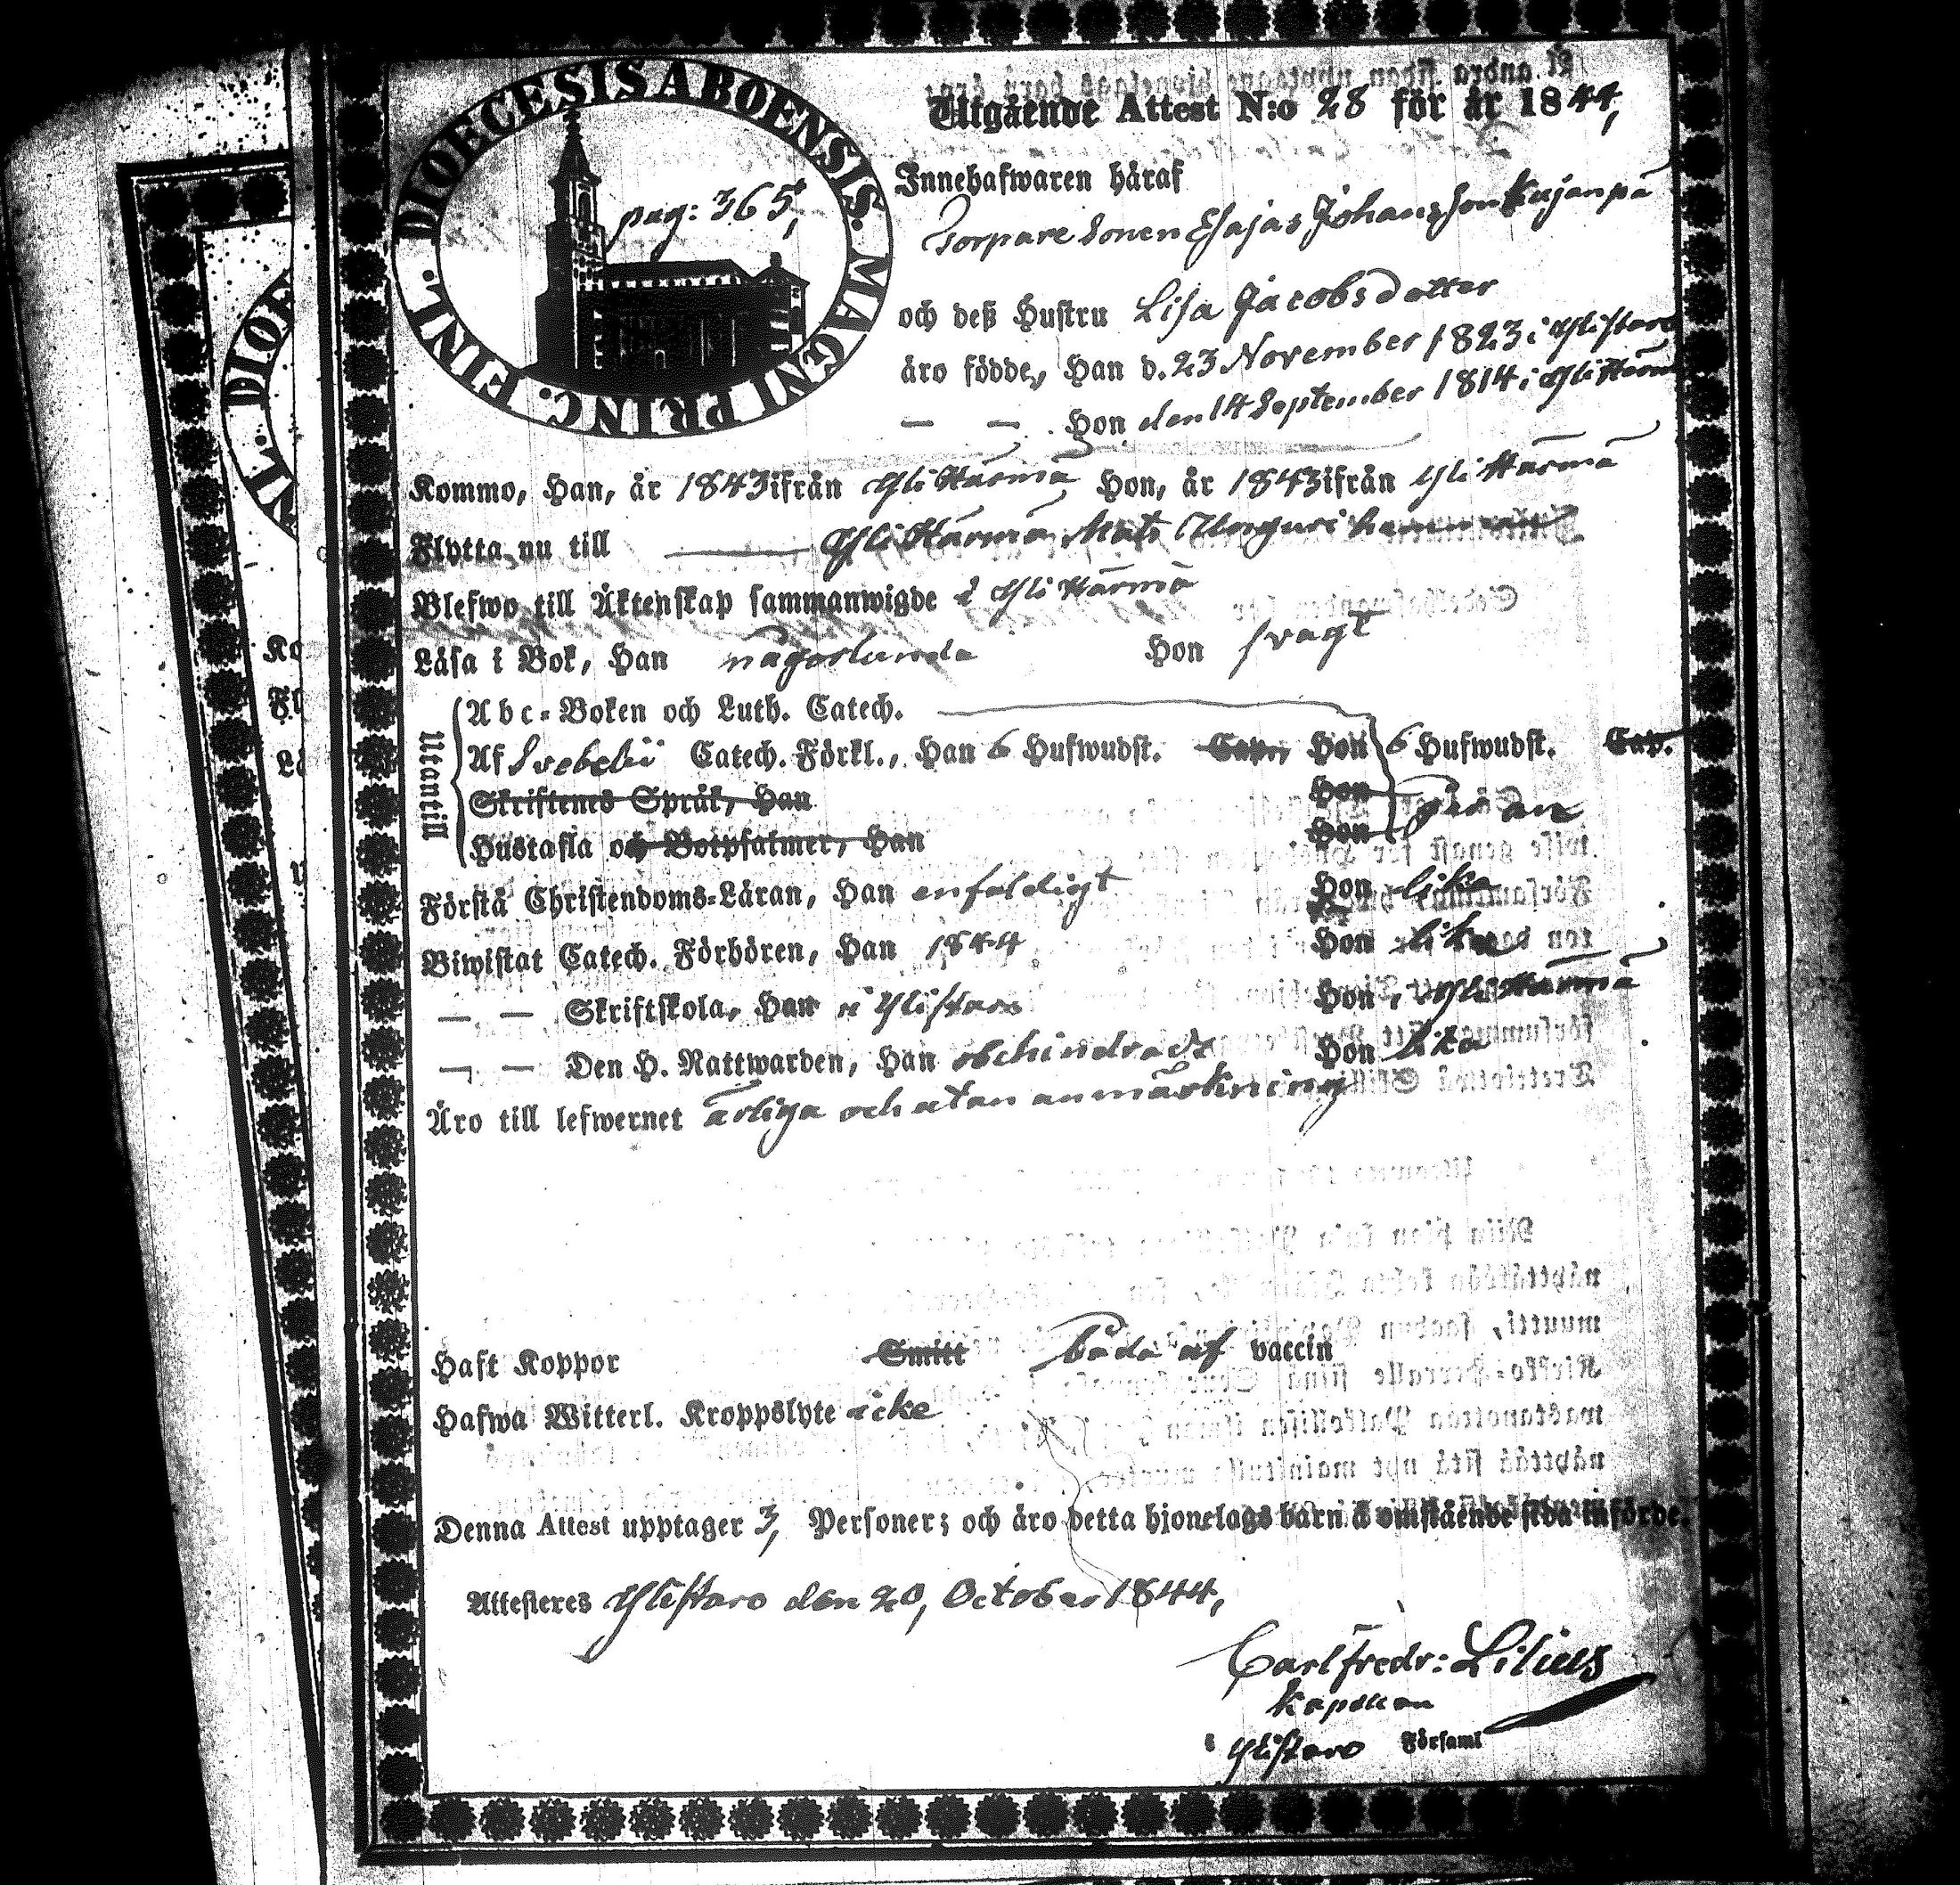 DIOECESIS ABOENSIS. MAGNI PRINC. FINL.
pag: 365,
Utgående Attest N:o 28 för år 1844,
Innehafwaren häraf
Torpare Sonen Esajas Johansson Kujanpä
och deß Hustru Lisa Jacobsdotter
äro födde, Han d. 23 November 1823 i Ylistaro
— — . Hon den 14 September 1814 i Yli Härmä
Kommo, Han, år 1843 ifrån Yli Härmä Hon, år 1843 ifrån Yli Härmä
Flytta nu till Yli Härmä
Blefwo till Äktenskap sammanwigde i Yli Härmä
Läsa i Bok, Han någorlunda Hon svagt
Utantill
Abc-Boken och Luth. Catech.
Af Svebelii Catech. Förkl., Han 6 Hufwudst. Cap., Hon 6 Hufwudst. Cap.
Skriftenes Språk, Han Hon
Hustafla och Botpsalmer, Han Hon
Förstå Christendoms-Läran, Han enfaldigt Hon lika
Biwistat Catech. Förhören, Han 1844 Hon lika
— — Skriftskola, Han i Ylistaro Hon, i Yli Härmä
— — Den H. Nattwarden, Han obehindradt Hon lika
Äro till lefwernet ärliga och utan anmärkning
Haft Koppor Smitt båda af vaccin
Hafwa Witterl. Kroppslyte icke
Denna Attest upptager 3, Personer; och äro detta hjonelags barn å omstående sida införde.
Attesteres Ylistaro den 20, October 1844,
Carl Fredr: Lilius
Kapellan
i Ylistaro Församl